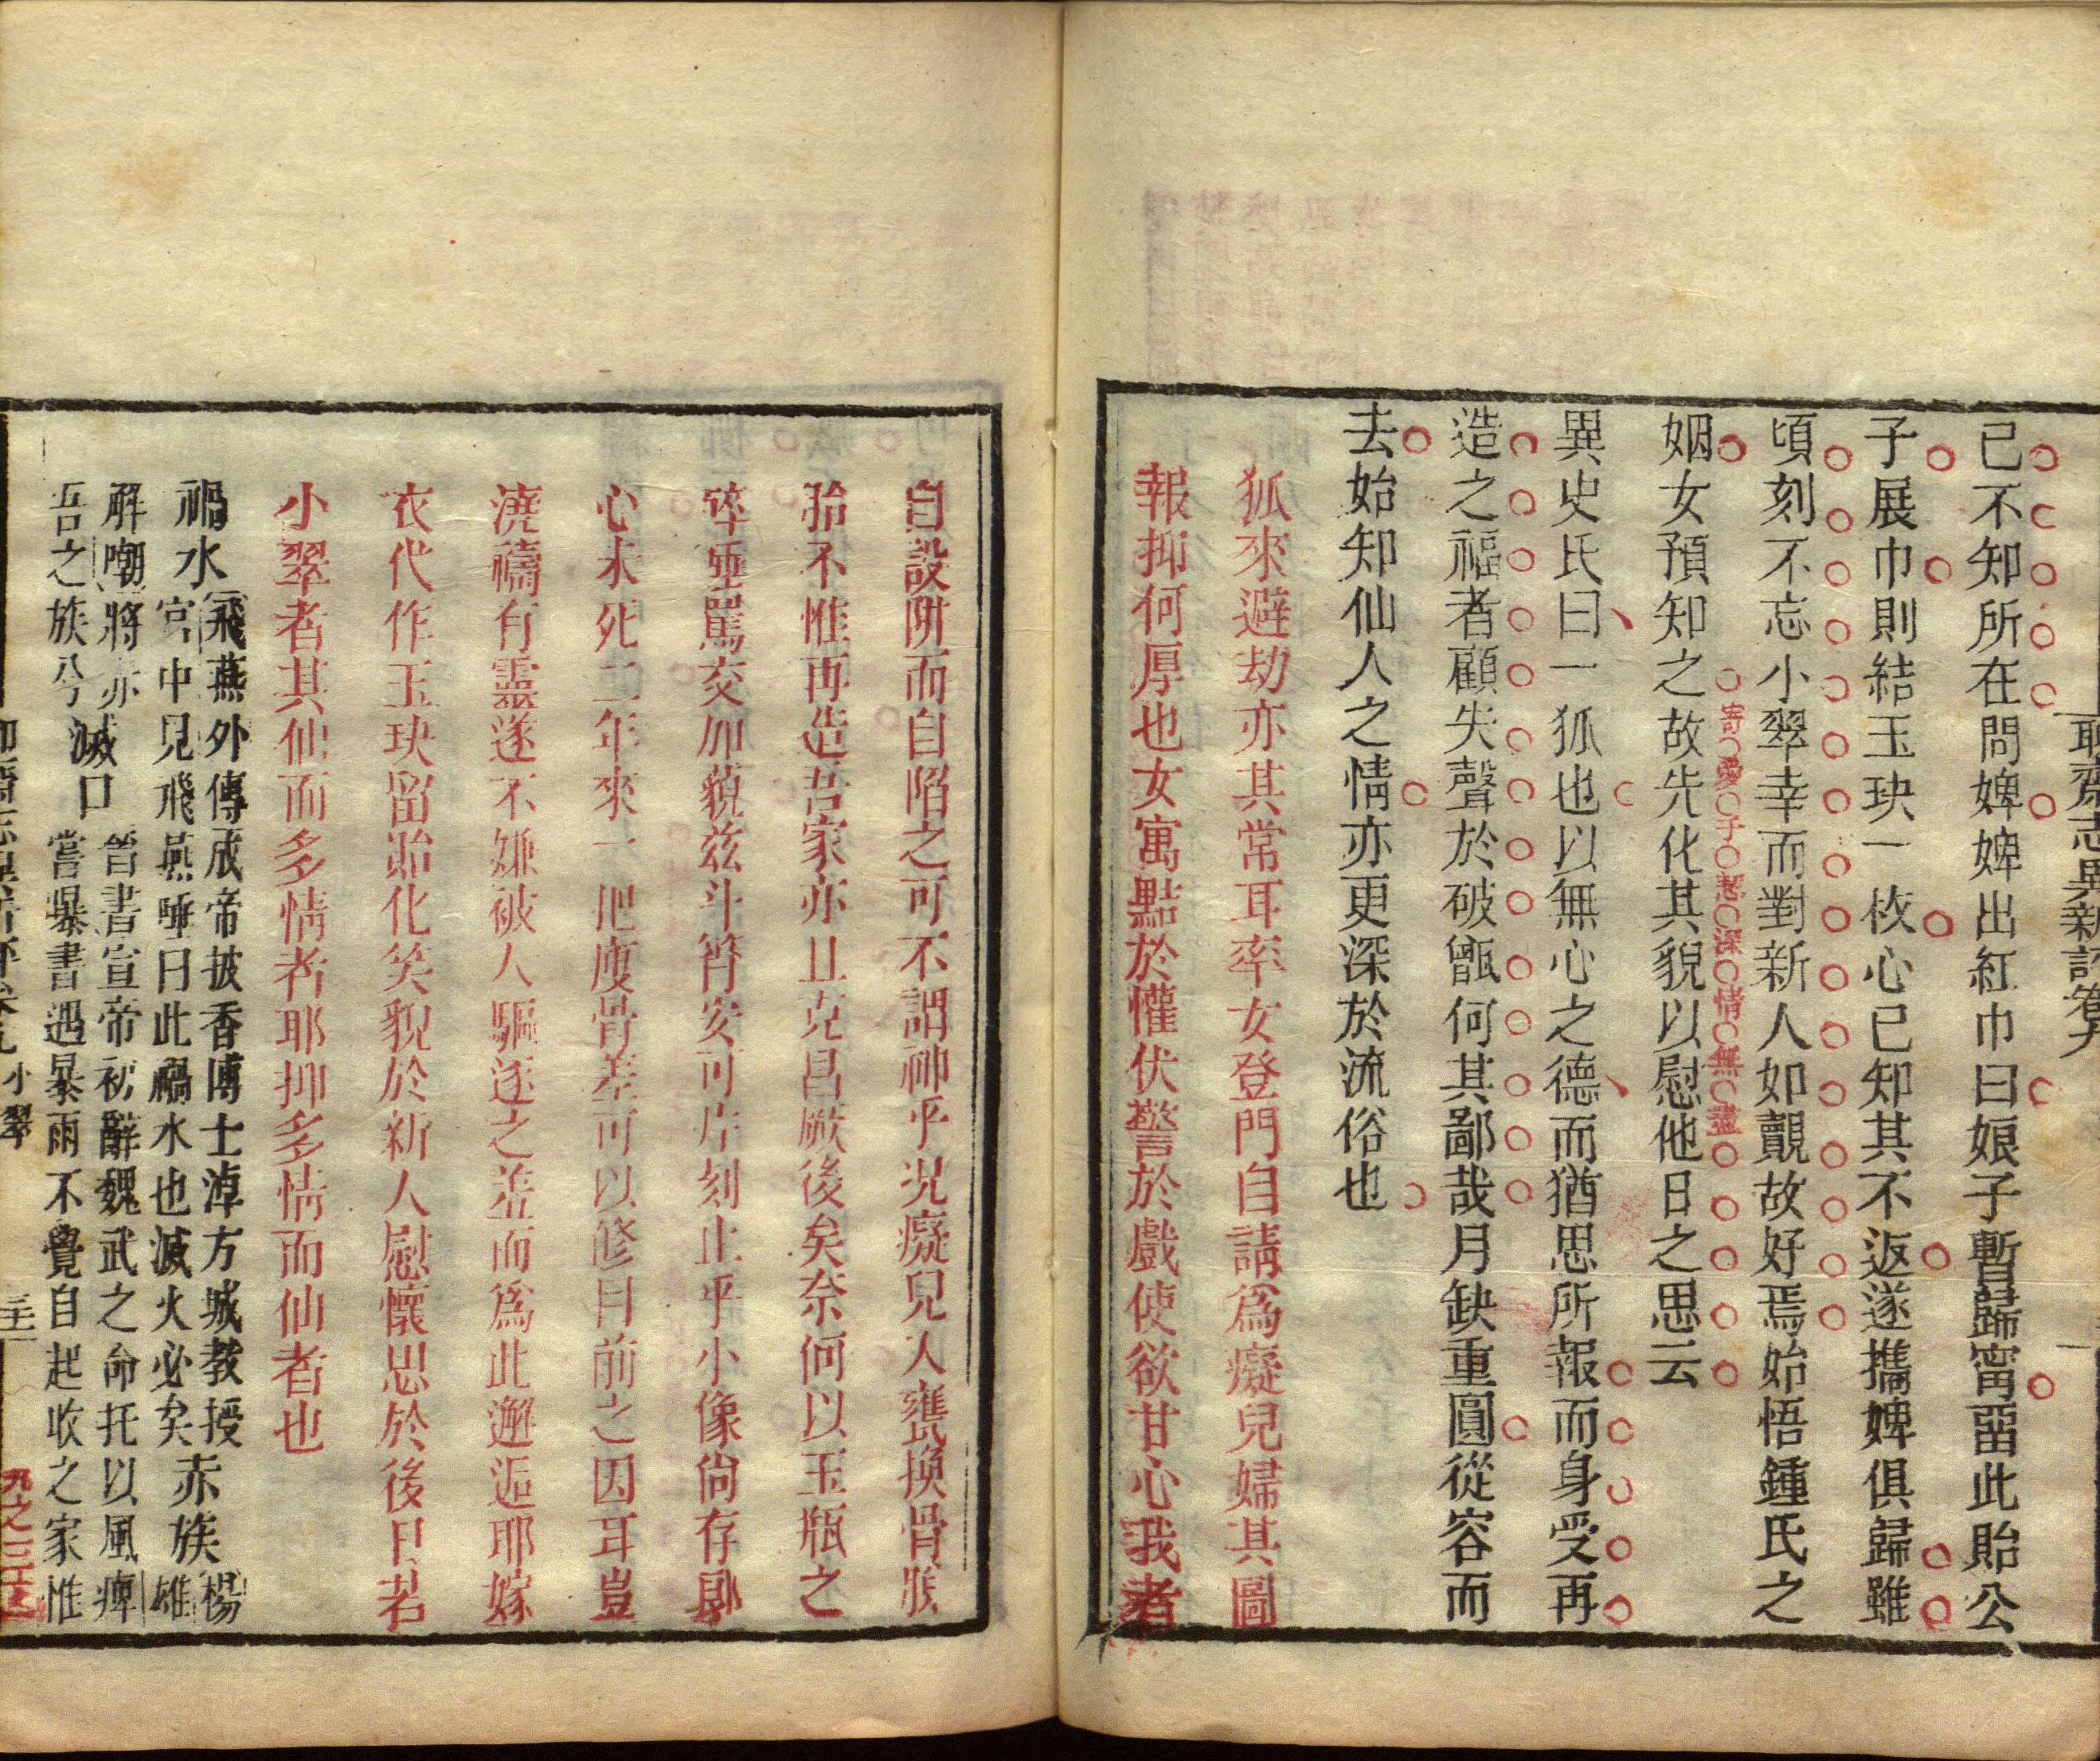 聊齋志異新評卷九
已不知所在問婢婢出紅巾曰娘子暫歸甯留此貽公
子展巾則結玉玦一枚心已知其不返遂攜婢俱歸雖
頃刻不忘小翠幸而對新人如覿故好焉始悟鍾氏之
姻女預知之故先化其貌以慰他日之思云
寄愛子慰深情無盡
異史氏曰一狐也以無心之德而猶思所報而身受再
造之福者顧失聲於破甑何其鄙哉月缺重圓從容而
去始知仙人之情亦更深於流俗也
狐來避劫亦其常耳率女登門自請為癡兒婦其圖
報抑何厚也女寓黠於懽伏警於戲使欲甘心我者
自設阱而自陷之可不謂神乎況癡兒入甕換骨脫
胎不惟再造吾家亦且克昌厥後矣奈何以玉瓶之
碎唾罵交加藐茲斗筲安可片刻止乎小像尚存鄖
心未死二年來一肥瘦骨差可以修目前之因耳豈
澆禱有靈遂不嫌被人驅逐之羞而為此邂逅耶嫁
衣代作玉玦留貽化笑貌於新人慰懷思於後日若
小翠者其仙而多情者耶抑多情而仙者也
禍水
飛燕外傳成帝披香博士淖方城教授
宮中見飛燕唾曰此禍水也滅火必矣
赤族
楊雄
解嘲將
吾之族兮
滅口
晉書宣帝初辭魏武之命托以風痺
嘗曝書遇暴雨不覺自起收之家惟
小翠